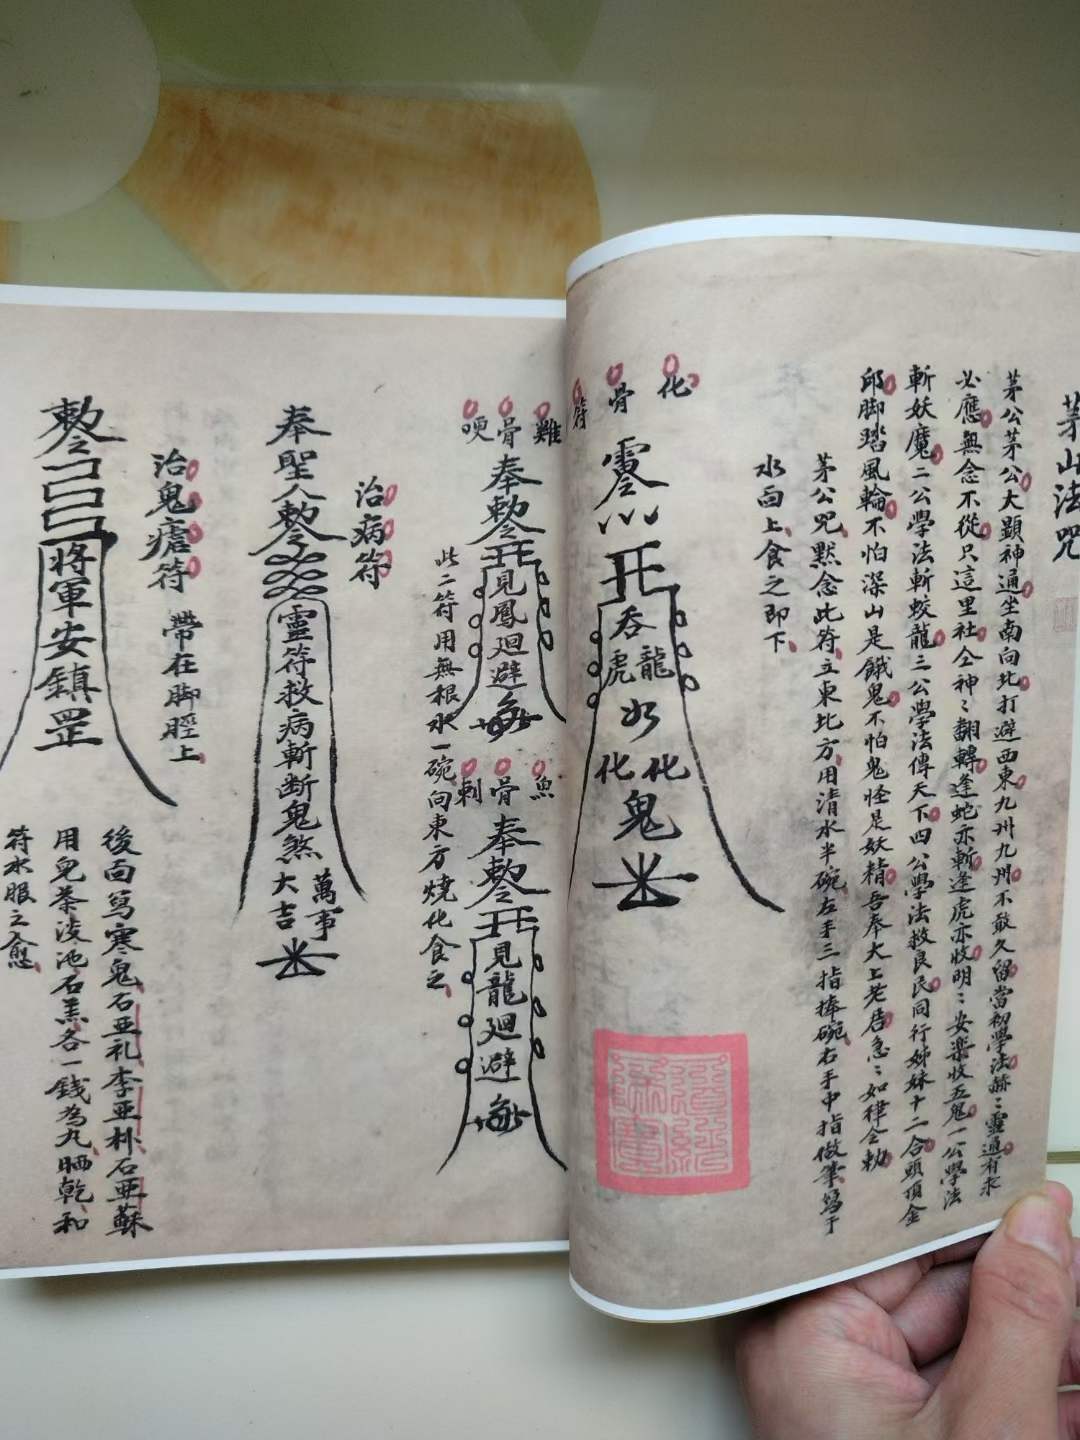 茅山法咒
茅公茅公大顯神通坐南向北打避西東九州九州不敢久留當初學法赫〻靈通有求
必應無念不從只這里社仝神〻翻轉逢蛇亦斬逢虎亦收明〻安樂收五鬼一公學法
斬妖魔二公學法斬蛟龍三公學法傳天下四公學法救良民同行姊妹十二合頭頂金
邱脚踏風輪不怕深山是餓鬼不怕鬼怪是妖精吾奉大上老君急〻如律令勅
茅公咒默念此符立東北方用清水半碗左手三指捧碗右手中指做筆寫于
水面上食之即下
化骨符
吞
龍虎
化化
鬼
雞骨哽
奉勅
見鳳廻避
魚骨刺
奉勅
見龍廻避
此二符用無根水一碗向東方燒化食之
治病符
奉聖人勅
靈符救病斬断鬼煞
萬事
大吉
治鬼瘧符
帶在脚脛上
勅
將軍安鎮罡
後面寫寒鬼石亞礼李亞朴石亞蘇
用皂茶淩池石羔各一錢為丸晒乾和
符水服之愈